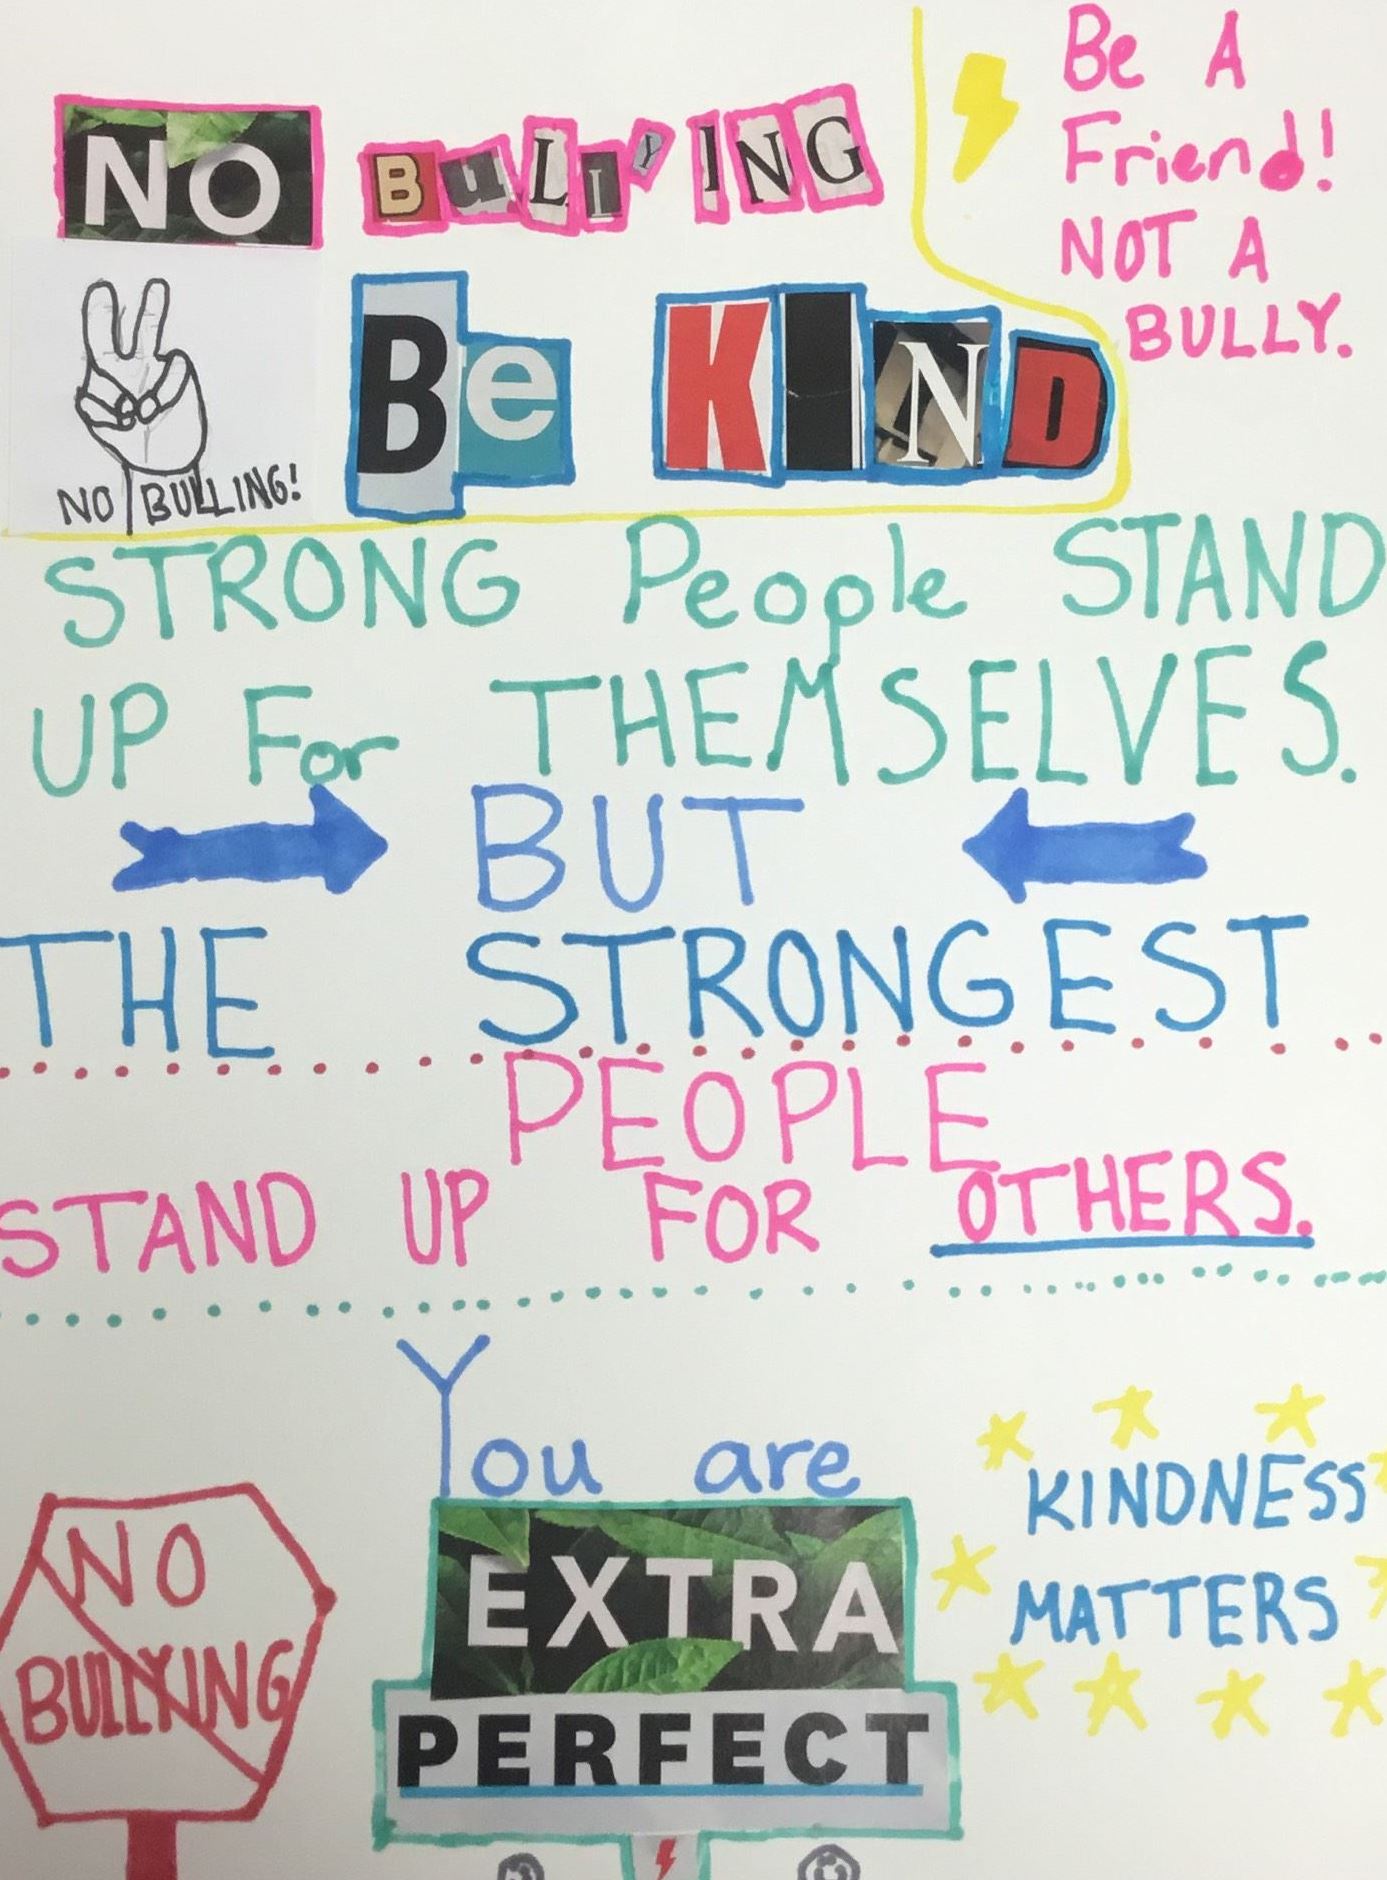 NO BuLLYING
Be A
Friend!
NOT A
BULLY.
Be KIND
NO BULLING!
STRONG People STAND
UP For THEMSELVES.
BUT
THE STRONGEST
PEOPLE
STAND UP FOR OTHERS.
You are
EXTRA
PERFECT
KINDNESS
MATTERS
NO
BULLYING